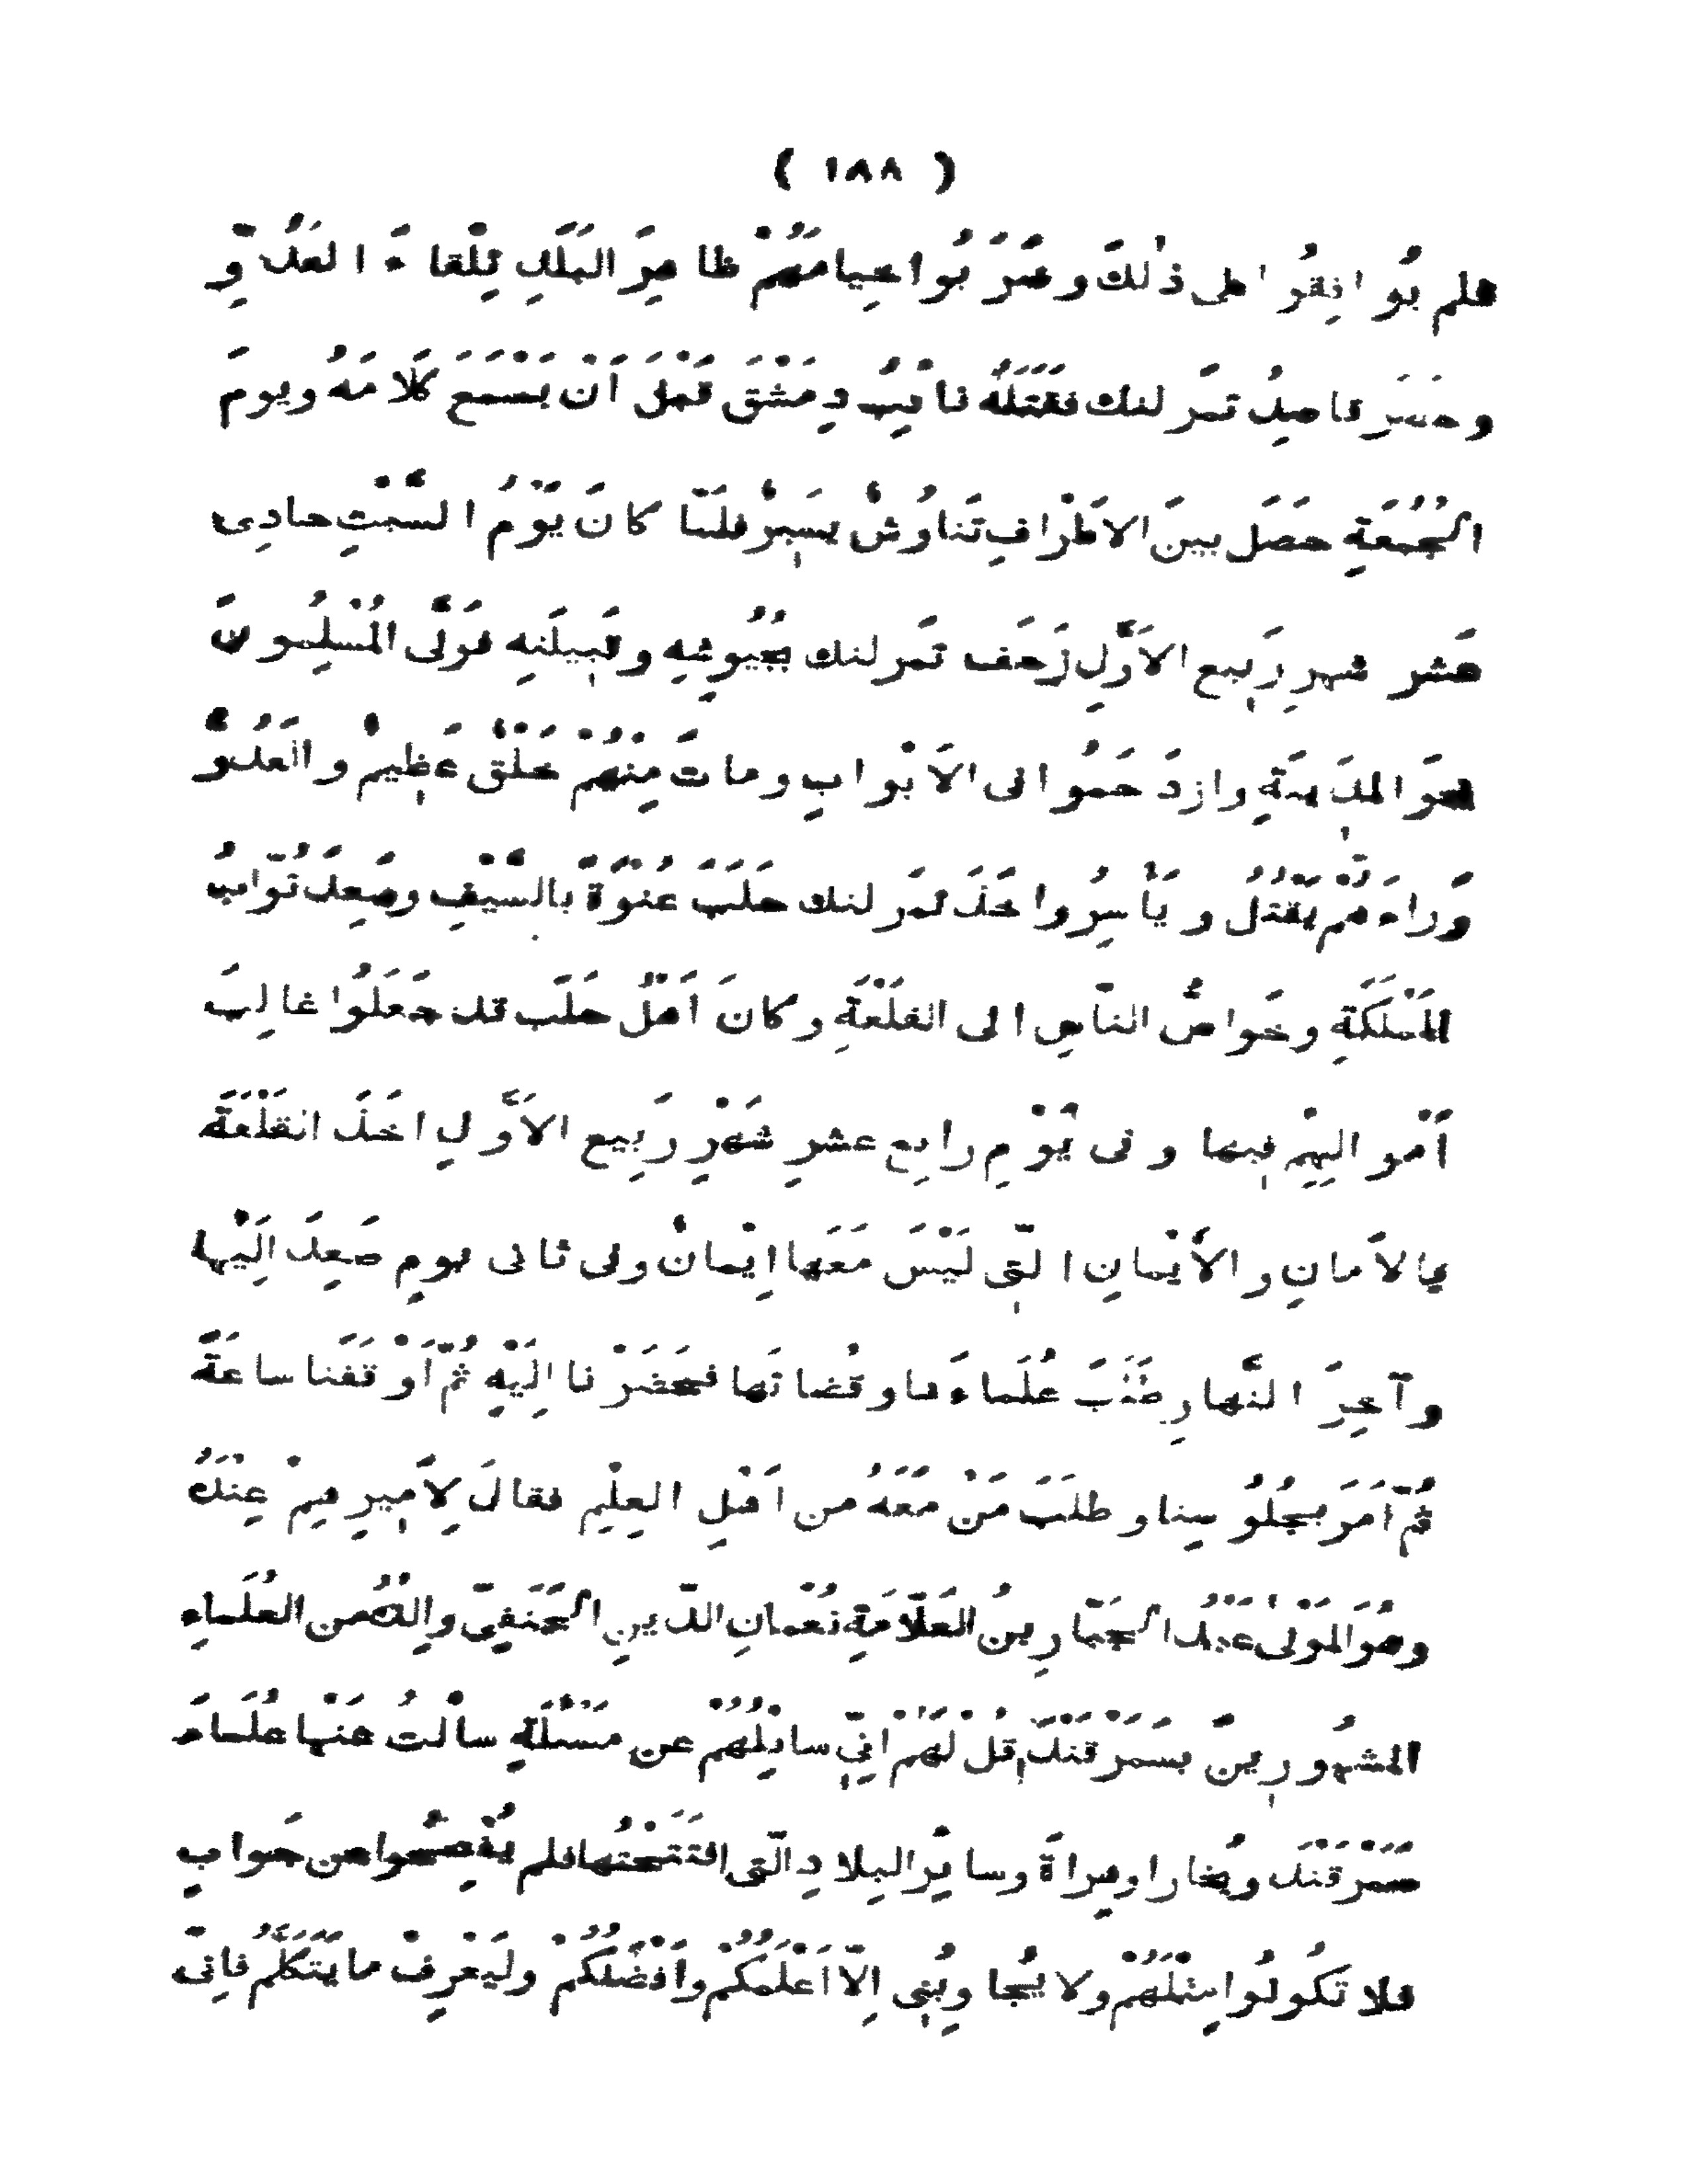 ( ١٨٨ )
فلم يُوافِقُوا على ذٰلكَ وضَرَبُوا خِيامَهُمْ ظاهِرَ البَلَدِ لِلِقاءَ العَدُوِّ
وحضَرَ قاصِدُ تمَرلنك فقَتَلَهُ نائِبُ دِمَشْقَ قَبْلَ اَنْ يَسْمَعَ كَلَامَهُ ويومَ
الجُمُعَةِ حَصَل بينَ الاَطْرافِ تَناوُشٌ يسِيرٌ فلَمّا كانَ يَوْمُ السَّبْتِ حادِى
عشر شهرِ رَبيع الاَوَّلِ زَحَفَ تَمَرلنك بجُيُوشِهِ وفِيَلَتِهِ فوَلَّى المُسْلِمُونَ
نحوَ المَدِينَةِ وازدَحَمُوا الى الاَبْوابِ وماتَ مِنْهُمْ خَلْقٌ عَظِيمٌ والعَدُوُّ
وَراءَهُم يَقْتُلُ ويَأْسِرُ واخَذَ تمَرلنك حلَبَ عُنْوَةً بالسَّيْفِ وصَعِدَ نُوّابُ
المَمْلَكَةِ وخَواصُّ النّاسِ الى القَلْعَةِ وكانَ اَهْلُ حلَب قد جَعَلُوا غالِبَ
اَمْوالِهِمْ فيها وفى يَوْمِ رابِع عشرِ شَهْرِ رَبِيع الاَوَّلِ اخَذَ القَلْعَةَ
بالاَمانِ والاَيْمانِ الّتِى لَيْسَ مَعَها اِيْمانٌ وفى ثانى يومٍ صَعِدَ اِلَيْها
وآخِرَ النَّهارِ طَلَبَ عُلَماءَها وقُضاتَها فحَضَرْنا اِلَيْهِ ثُمّ اَوْقَفَنا ساعَةً
ثُمّ اَمَرَ بجُلُوسِنا وطلَبَ مَنْ مَعَهُ من اَهْلِ العِلْمِ فقالَ لِاَمِيرِهِمْ عِنْدَهُ
وهُوَ المَوْلٰى عَبْدُ الجَبّارِ بنُ العَلّامَةِ نُعْمانِ الدّينِ الحَنَفِىّ والِدُهُ من العُلَماءِ
المشهُورِينَ بسَمَرْقَنْدَ قُلْ لَهُمْ اِنّى سائِلُهُمْ عن مَسْئَلَةٍ سأْلتُ عَنْها عُلَماءَ
سَمَرْقَنْدَ وبُخارا وهِراةَ وسائِرَ البِلادِ الّتى افْتَتَحْتُها فلم يُفْصِحُوا عن جَوابٍ
فلا تَكُونُوا مِثْلَهُمْ ولا يُجاوِبُنى اِلّا اَعْلَمُكُمْ واَفْضَلُكُمْ ولْيَعْرِفْ ما يَتَكَلَّمُ فاِنّى